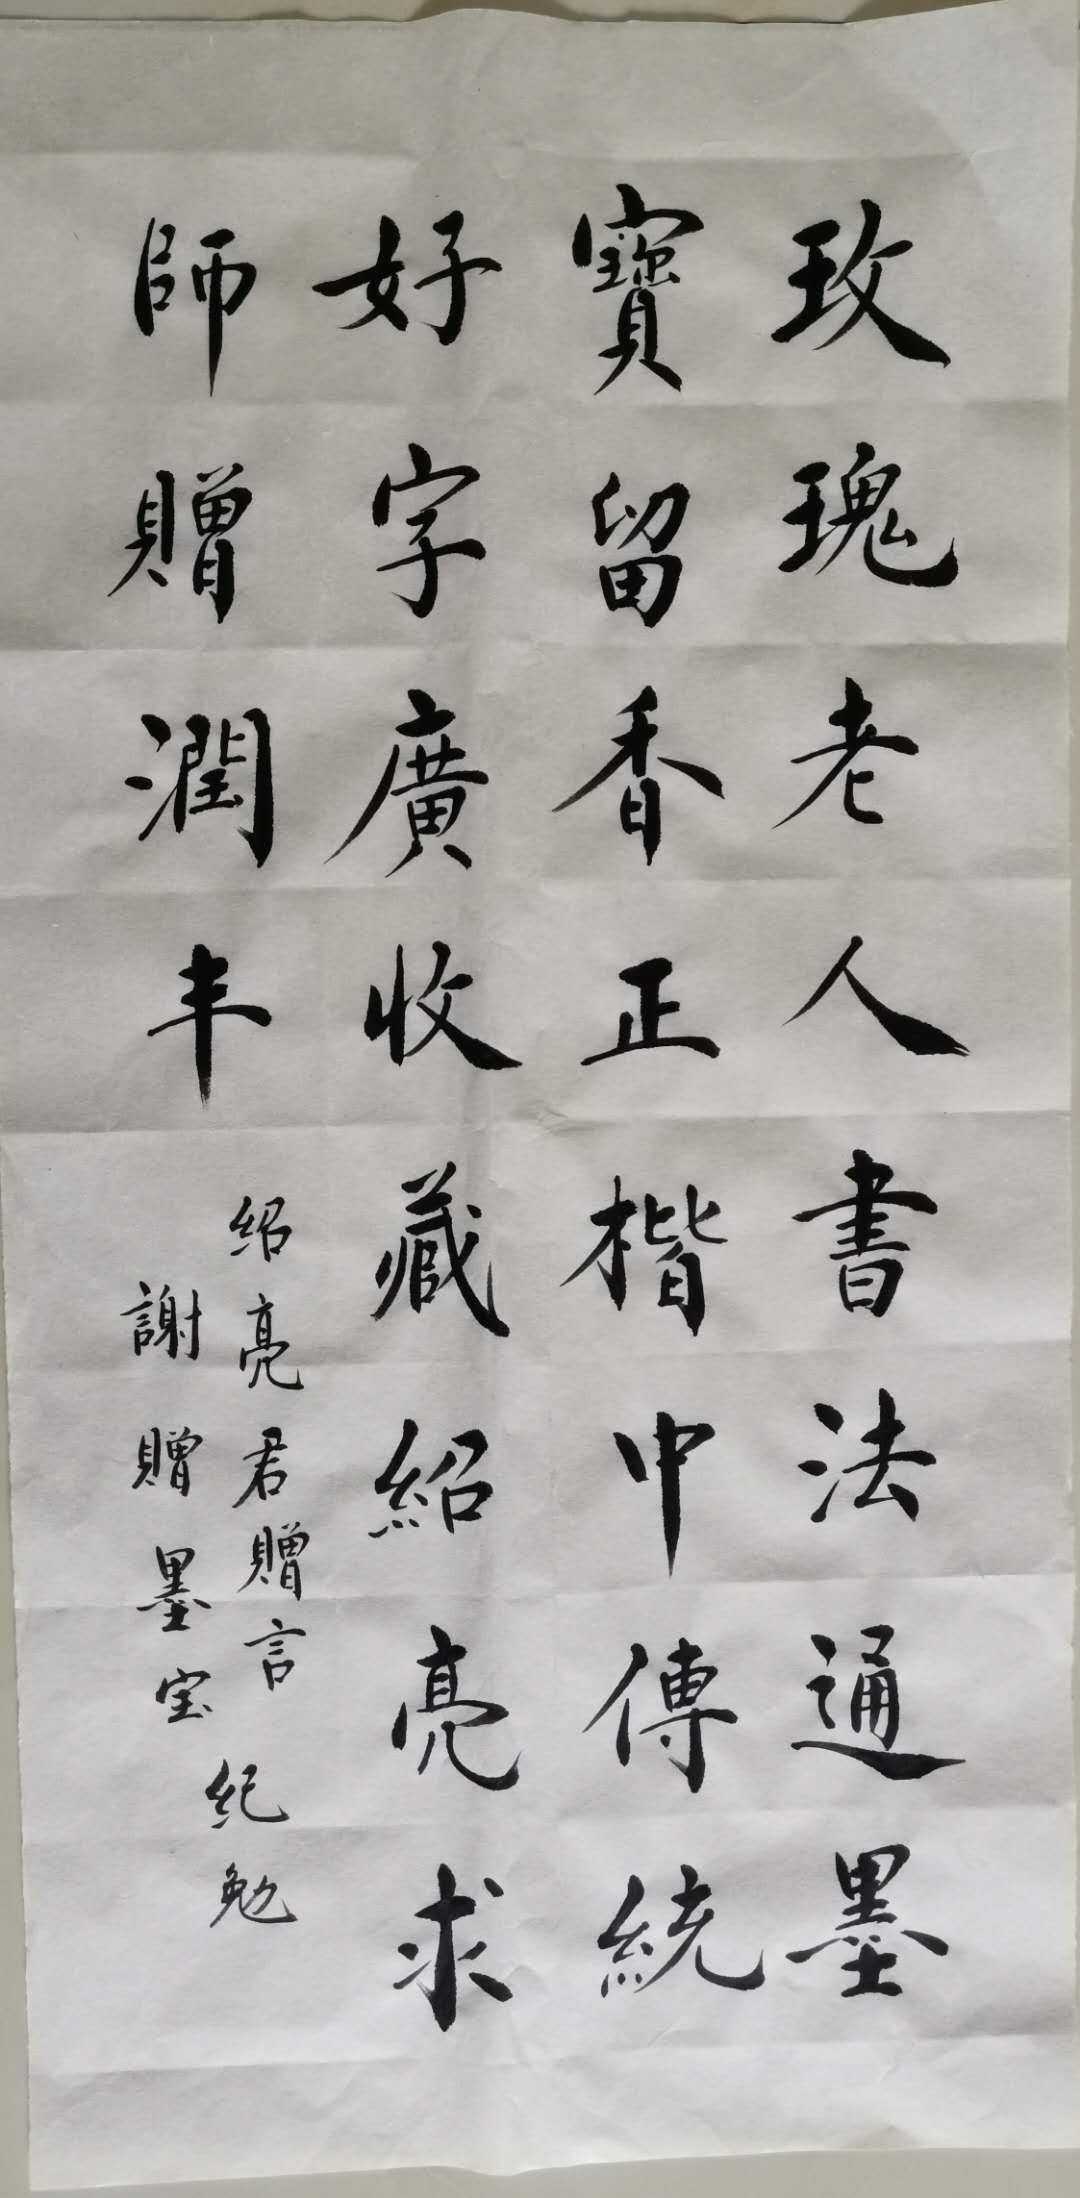 玫瑰老人書法通墨
寶留香正楷中傳統
好字廣收藏紹亮求
師贈潤丰
紹亮君贈言
謝贈墨宝
紀勉